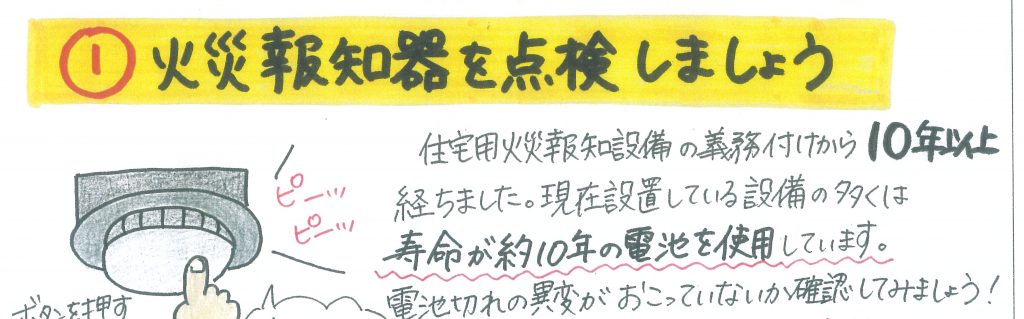 ① 火災報知器を点検しましょう
住宅用火災報知設備の義務付けから10年以上
経ちました。現在設置している設備の多くは
寿命が約10年の電池を使用しています。
電池切れの異変がおこっていないか確認してみましょう!
ピーッ
ピーッ
ボタンを押す